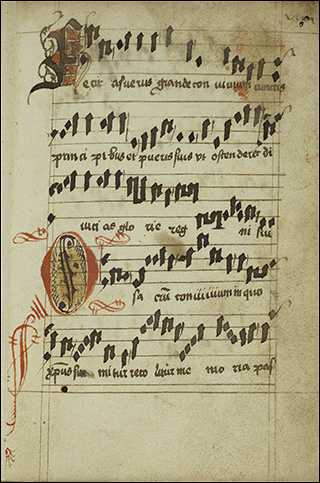 Fecit asuerus grande con uiuium cunctis
princi pibus et pueris suis vt ostenderet di
uici as glo rie reg ni sui
O sa crū conuiuium in quo
xp̄us su mitur reco litur me mo ria pas